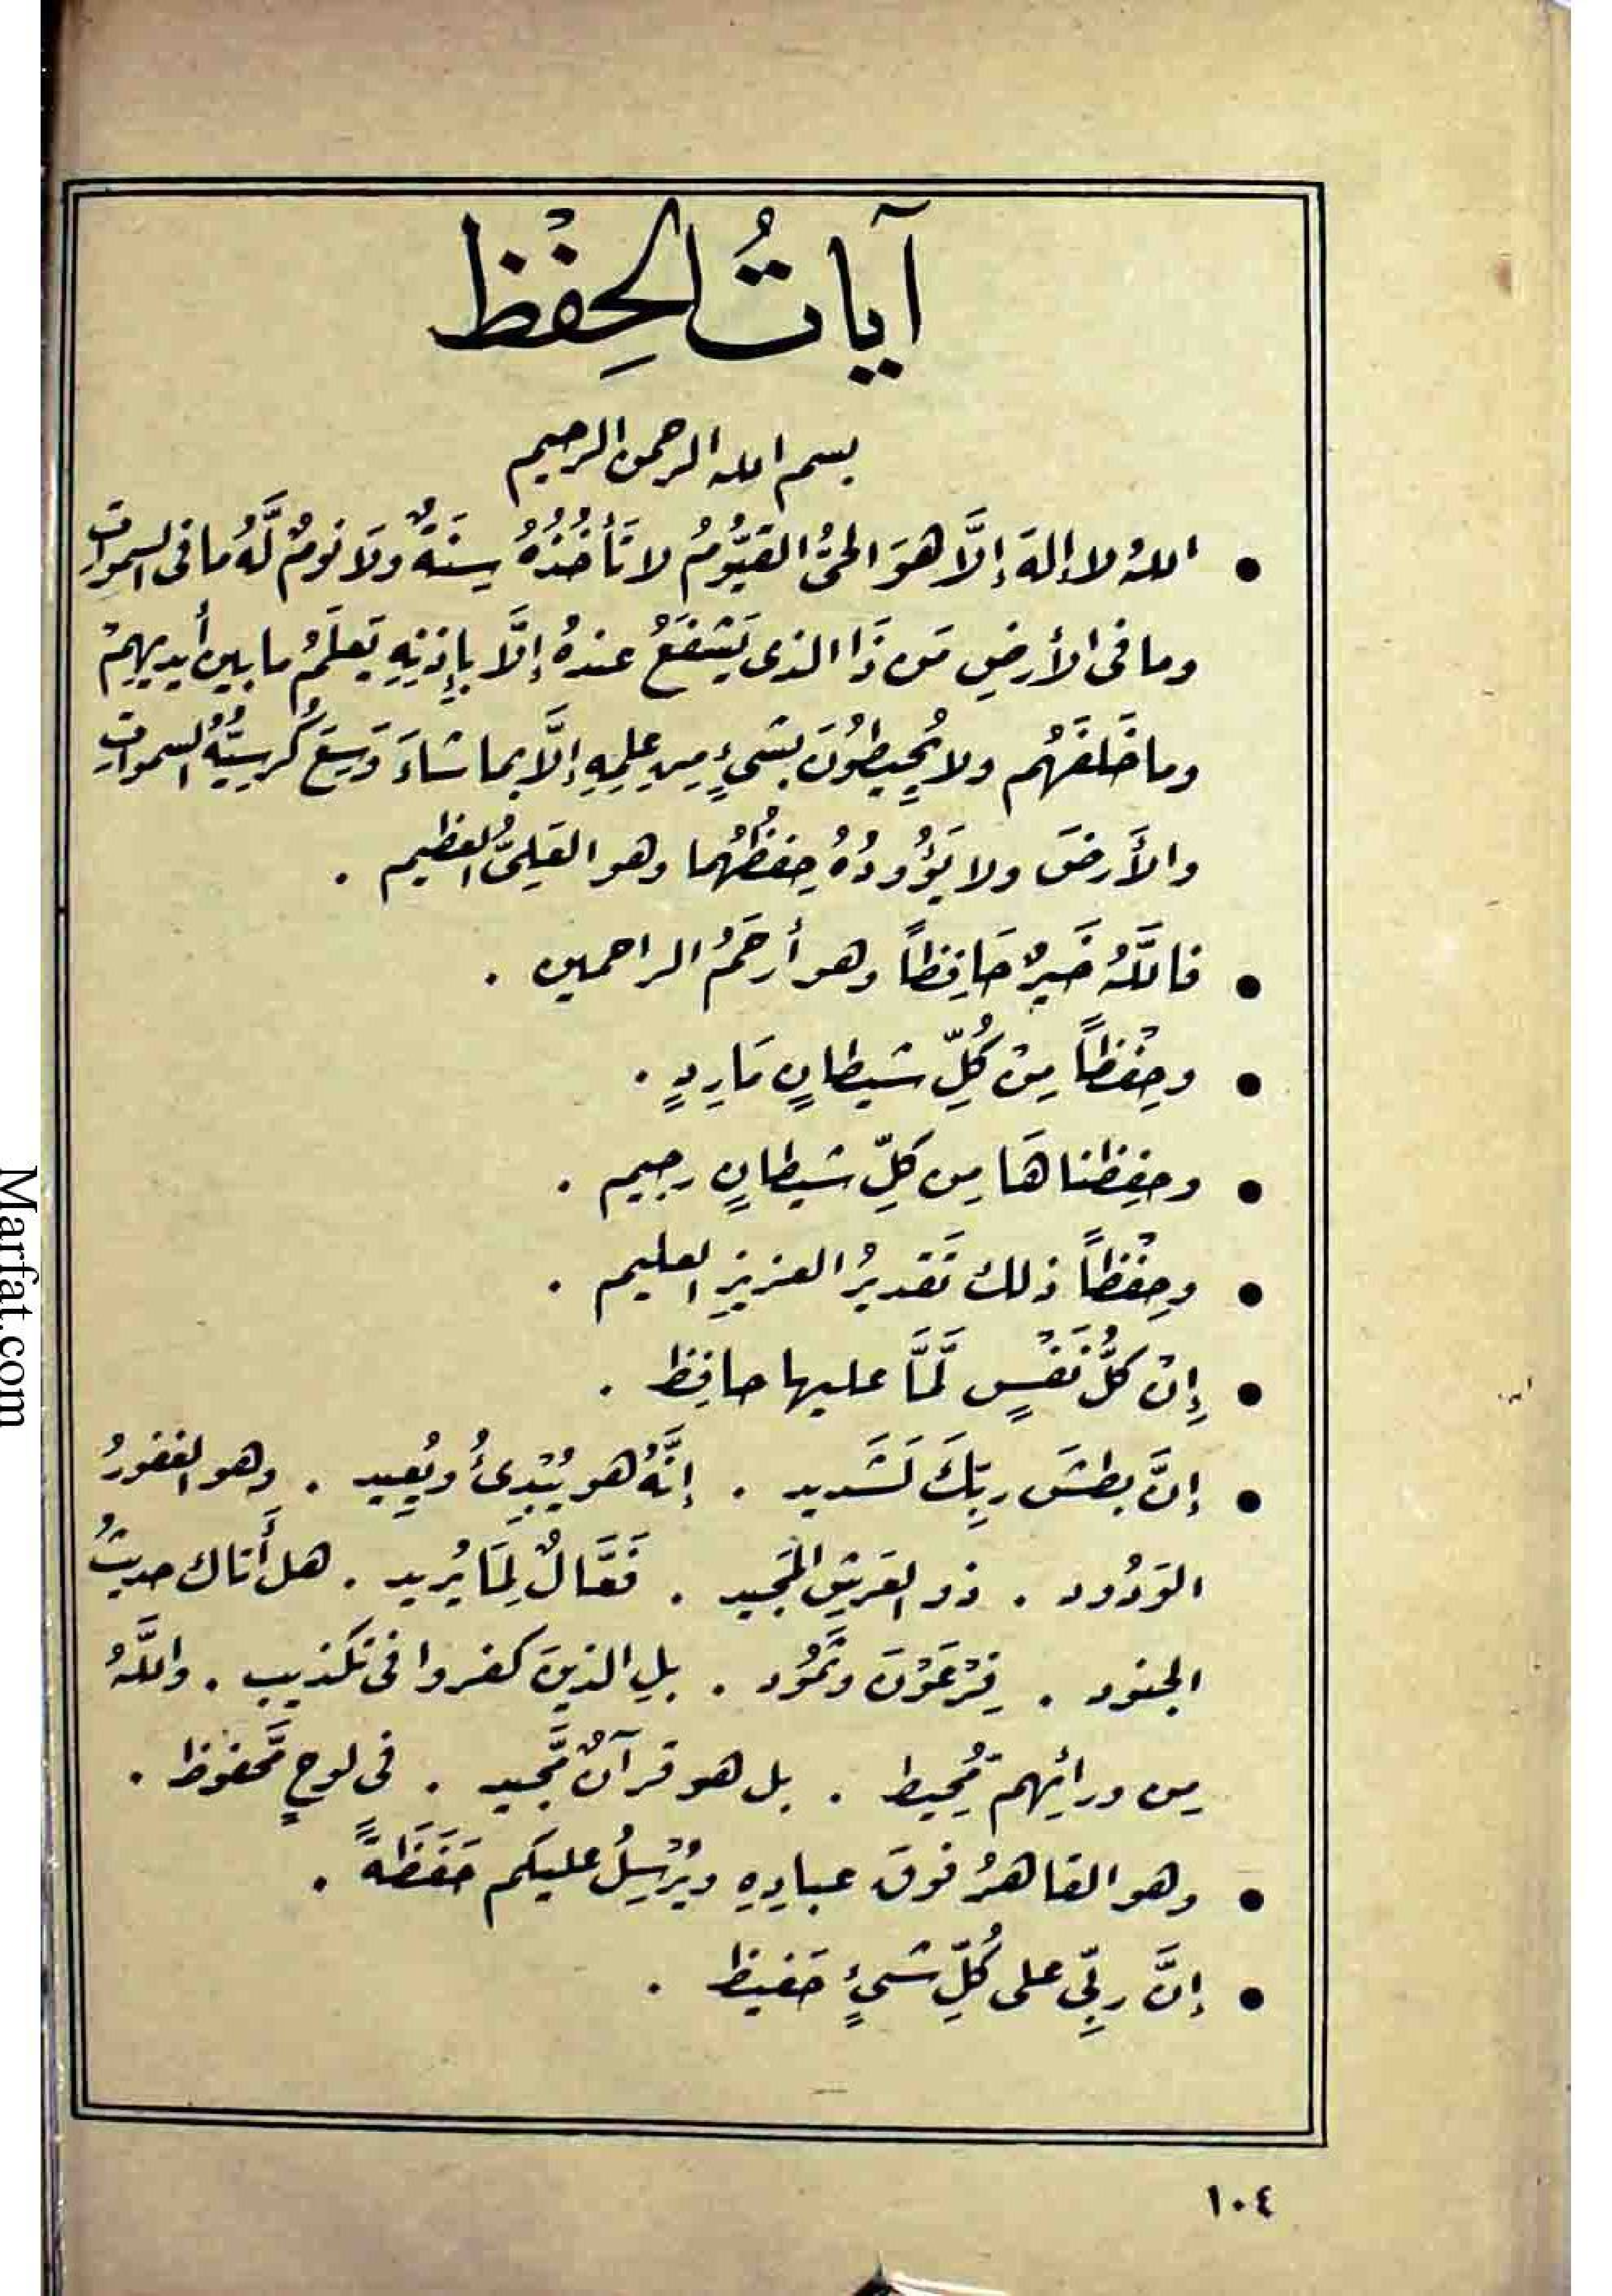 آيَاتُ الحِفْظ
بسم الله الرحمن الرحيم
● اللهُ لا إلهَ إلَّا هوَ الحَيُّ القيُّومُ لا تَأخُذُهُ سِنَةٌ ولَا نومٌ لَّهُ ما فى السموات
وما فى الأرضِ مَن ذَا الذى يَشفَعُ عندهُ إلَّا بإِذنِهِ يَعلَمُ ما بين أيديهِمْ
وما خَلفَهُم ولا يُحِيطُونَ بشىءٍ مِن عِلمِهِ إلَّا بما شاءَ وَسِعَ كُرسِيُّهُ السمواتِ
والأَرضَ ولا يَؤُودُهُ حِفظُهُما وهو العَلِىُّ العظيم .
● فاللَّهُ خَيرٌ حَافِظاً وهو أرحَمُ الراحمين .
● وحِفْظاً مِنْ كُلِّ شيطانٍ مَارِدٍ .
● وحفِظناهَا مِن كلِّ شيطانٍ رجيم .
● وحِفْظاً ذلك تَقديرُ العزيزِ العليم .
● إِنْ كلُّ نَفْسٍ لَّمَّا عليها حافِظ .
● إنَّ بطشَ ربِّكَ لَشَديد . إنَّهُ هو يُبْدِئُ ويُعِيد . وهو الغفورُ
الوَدُود . ذو العَرشِ المَجيد . فَعَّالٌ لِمَا يُريد . هل أَتاك حديثُ
الجنود . فِرْعَوْنَ وثَمُود . بلِ الذينَ كفروا فى تكذيب . واللَّهُ
مِن ورائِهم مُّحِيط . بل هو قرآنٌ مَّجيد . فى لوحٍ مَّحفوظ .
● وهو القاهرُ فوقَ عبادِهِ ويُرْسِلُ عليكم حَفَظَةً .
● إنَّ ربِّى على كُلِّ شىءٍ حَفيظ .
١٠٤
Marfat.com